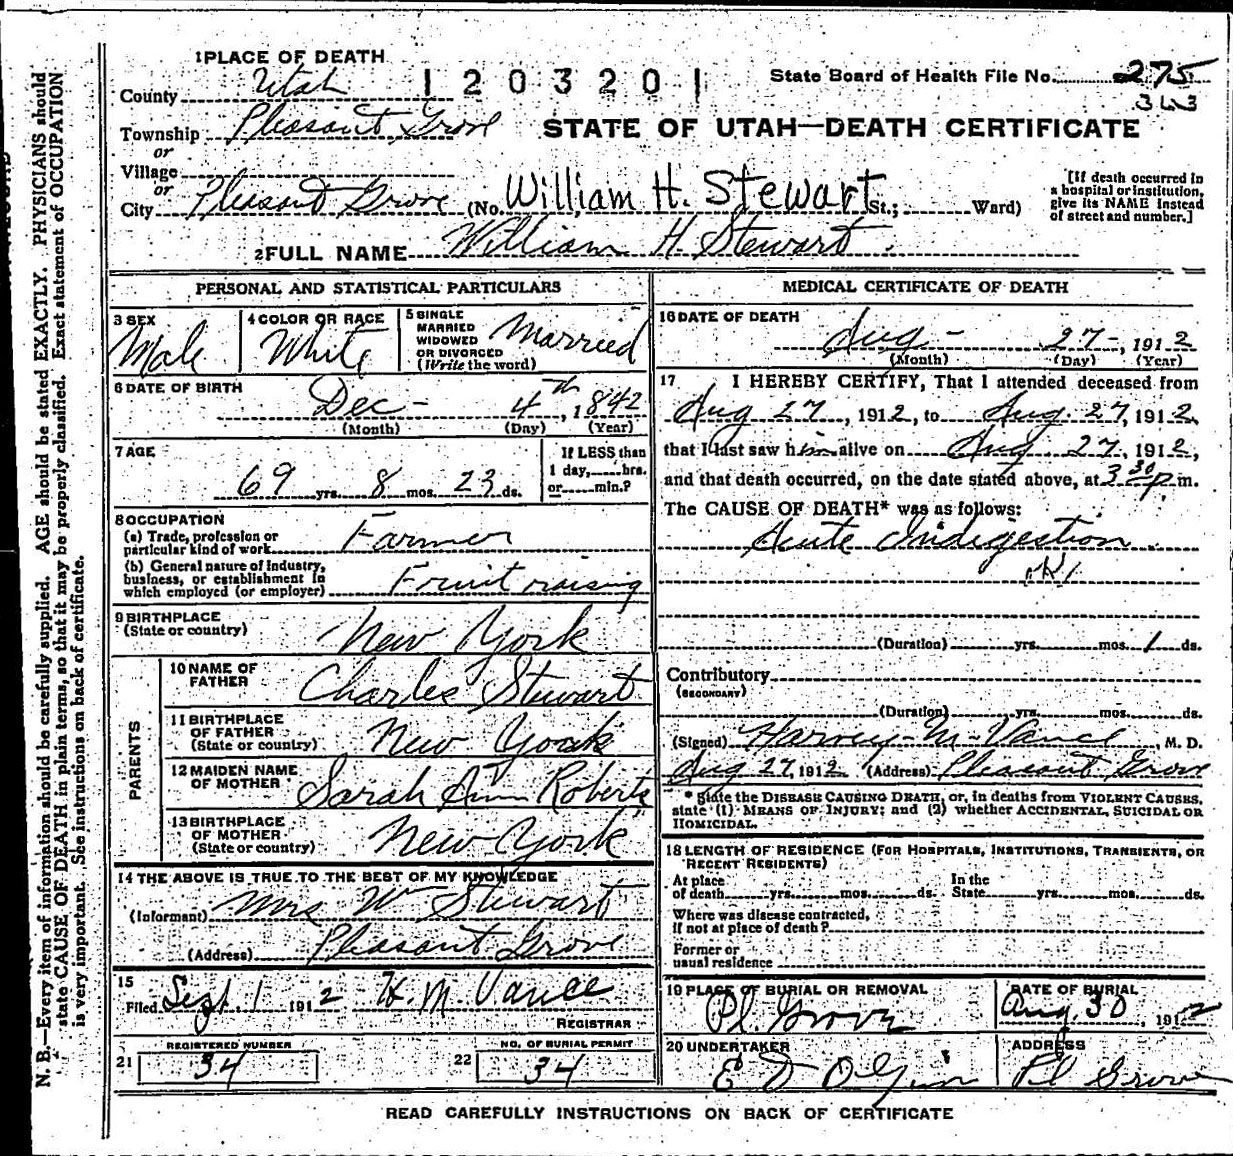 1 PLACE OF DEATH
County Utah
1203201
State Board of Health File No. 275
343
Township Pleasant Grove
or
Village
or
City Pleasant Grove (No. William H. Stewart St.; Ward)
STATE OF UTAH—DEATH CERTIFICATE
[If death occurred in
a hospital or institution,
give its NAME instead
of street and number.]
2 FULL NAME William H. Stewart
PERSONAL AND STATISTICAL PARTICULARS
3 SEX
Male
4 COLOR OR RACE
White
5 SINGLE
MARRIED
WIDOWED
OR DIVORCED
(Write the word)
Married
6 DATE OF BIRTH
Dec- 4th, 1842
(Month) (Day) (Year)
7 AGE
69 yrs. 8 mos. 23 ds.
If LESS than
1 day, hrs.
or min.?
8 OCCUPATION
(a) Trade, profession or
particular kind of work Farmer
(b) General nature of industry,
business, or establishment in
which employed (or employer) Fruit raising
9 BIRTHPLACE
(State or country) New York
PARENTS
10 NAME OF
FATHER Charles Stewart
11 BIRTHPLACE
OF FATHER
(State or country) New York
12 MAIDEN NAME
OF MOTHER Sarah Ann Roberts
13 BIRTHPLACE
OF MOTHER
(State or country) New York
14 THE ABOVE IS TRUE TO THE BEST OF MY KNOWLEDGE
(Informant) Mrs W Stewart
(Address) Pleasant Grove
15
Filed Sept. 1 1912 H. M. Vance
REGISTRAR
21 REGISTERED NUMBER
34
22 NO. OF BURIAL PERMIT
34
MEDICAL CERTIFICATE OF DEATH
16 DATE OF DEATH
Aug- 27-, 1912
(Month) (Day) (Year)
17 I HEREBY CERTIFY, That I attended deceased from
Aug 27, 1912, to Aug. 27, 1912,
that I last saw him alive on Aug 27, 1912,
and that death occurred, on the date stated above, at 3 30 p m.
The CAUSE OF DEATH* was as follows:
Acute Indigestion
(Duration) yrs. mos. 1 ds.
Contributory
(SECONDARY)
(Duration) yrs. mos. ds.
(Signed) Harvey M. Vance, M. D.
Aug 27, 1912 (Address) Pleasant Grove
* State the DISEASE CAUSING DEATH, or, in deaths from VIOLENT CAUSES,
state (1) MEANS OF INJURY; and (2) whether ACCIDENTAL, SUICIDAL OR
HOMICIDAL.
18 LENGTH OF RESIDENCE (FOR HOSPITALS, INSTITUTIONS, TRANSIENTS, OR
RECENT RESIDENTS)
At place In the
of death yrs. mos. ds. State yrs. mos. ds.
Where was disease contracted,
if not at place of death?
Former or
usual residence
19 PLACE OF BURIAL OR REMOVAL
Pl. Grove
DATE OF BURIAL
Aug. 30, 1912
20 UNDERTAKER
E D
ADDRESS
Pl Grove
READ CAREFULLY INSTRUCTIONS ON BACK OF CERTIFICATE
N. B.—Every item of information should be carefully supplied. AGE should be stated EXACTLY. PHYSICIANS should
state CAUSE OF DEATH in plain terms, so that it may be properly classified. Exact statement of OCCUPATION
is very important. See instructions on back of certificate.